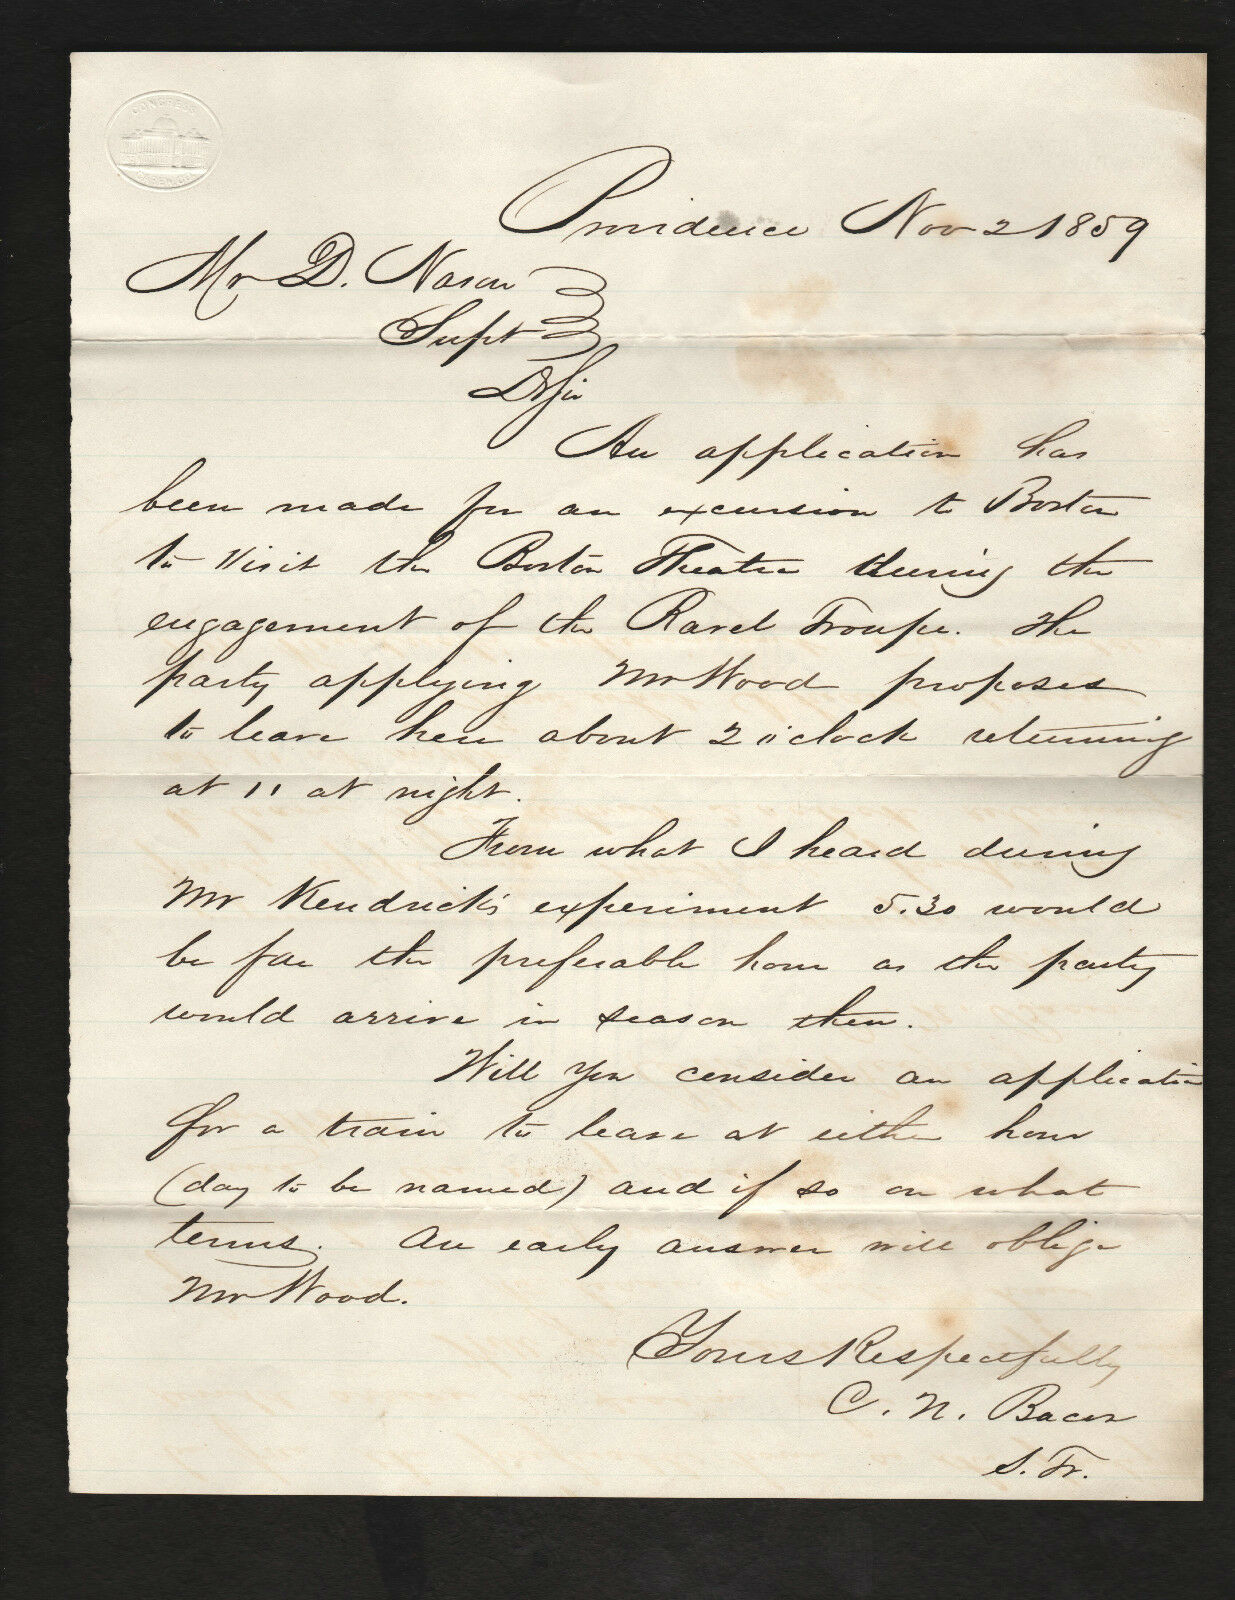 CONGRESS
Providence Nov 2 1859
Mr D. Nason
Supt
D Sir
An application has
been made for an excursion to Boston
to visit the Boston Theatre during the
engagement of the Ravel Troupe. The
party applying Mr Wood proposes
to leave here about 2 o'clock returning
at 11 at night.
From what I heard during
Mr Kendrick's experiment 5.30 would
be far the preferable hour as the party
would arrive in season then.
Will you consider an application
for a train to leave at either hour
(day to be named) and if so on what
terms. An early answer will oblige
Mr Wood.
Yours Respectfully
C. N. Bacon